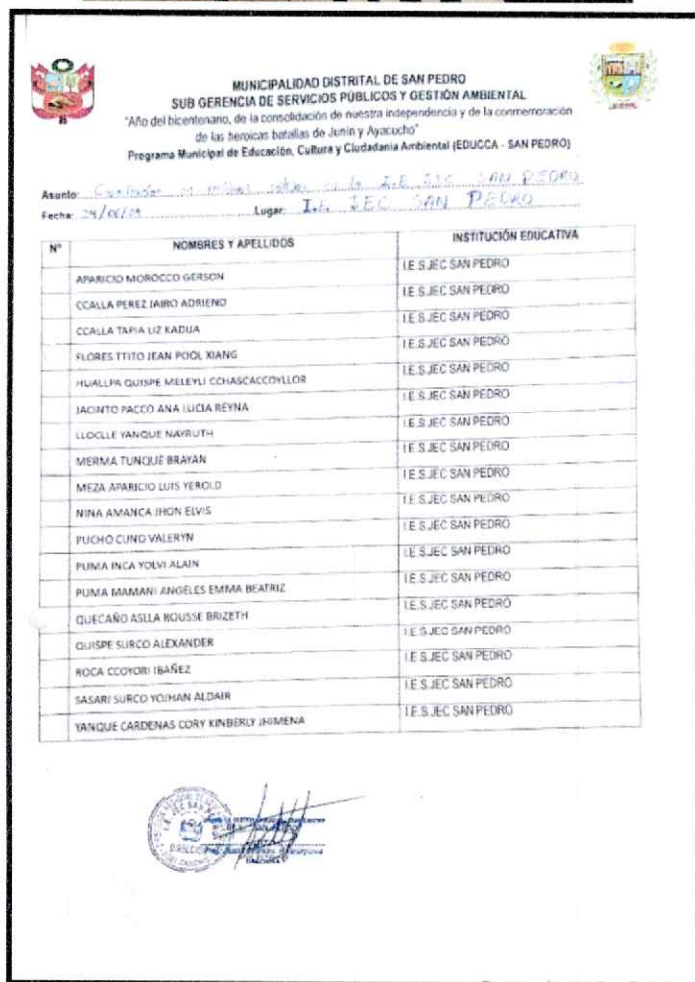 MUNICIPALIDAD DISTRITAL DE SAN PEDRO
SUB GERENCIA DE SERVICIOS PÚBLICOS Y GESTIÓN AMBIENTAL
"Año del bicentenario, de la consolidación de nuestra independencia y de la conmemoración
de las heroicas batallas de Junín y Ayacucho"
Programa Municipal de Educación, Cultura y Ciudadanía Ambiental (EDUCCA - SAN PEDRO)
Asunto: en la I.E JEC SAN PEDRO
Fecha: Lugar: I.E. JEC SAN PEDRO
N° NOMBRES Y APELLIDOS INSTITUCIÓN EDUCATIVA
APARICIO MOROCCO GERSON I.E.S JEC SAN PEDRO
CCALLA PEREZ JAIRO ADRIENO I.E.S JEC SAN PEDRO
CCALLA TAPIA LIZ KADUA I.E.S JEC SAN PEDRO
FLORES TTITO JEAN POOL XIANG I.E.S JEC SAN PEDRO
HUALLPA QUISPE MELEYLI CCHASCACCOYLLOR I.E.S JEC SAN PEDRO
JACINTO PACCO ANA LUCIA REYNA I.E.S JEC SAN PEDRO
LLOCLLE YANQUE NAYRUTH I.E.S JEC SAN PEDRO
MERMA TUNQUE BRAYAN I.E.S JEC SAN PEDRO
MEZA APARICIO LUIS YEROLD I.E.S JEC SAN PEDRO
NINA AMANCA JHON ELVIS I.E.S JEC SAN PEDRO
PUCHO CUNO VALERYN I.E.S JEC SAN PEDRO
PUMA INCA YOLVI ALAIN I.E.S JEC SAN PEDRO
PUMA MAMANI ANGELES EMMA BEATRIZ I.E.S JEC SAN PEDRO
QUECAÑO ASLLA ROUSSE BRIZETH I.E.S JEC SAN PEDRO
QUISPE SURCO ALEXANDER I.E.S JEC SAN PEDRO
ROCA CCOYORI IBAÑEZ I.E.S JEC SAN PEDRO
SASARI SURCO YOJHAN ALDAIR I.E.S JEC SAN PEDRO
YANQUE CARDENAS CORY KINBERLY JHIMENA I.E.S JEC SAN PEDRO